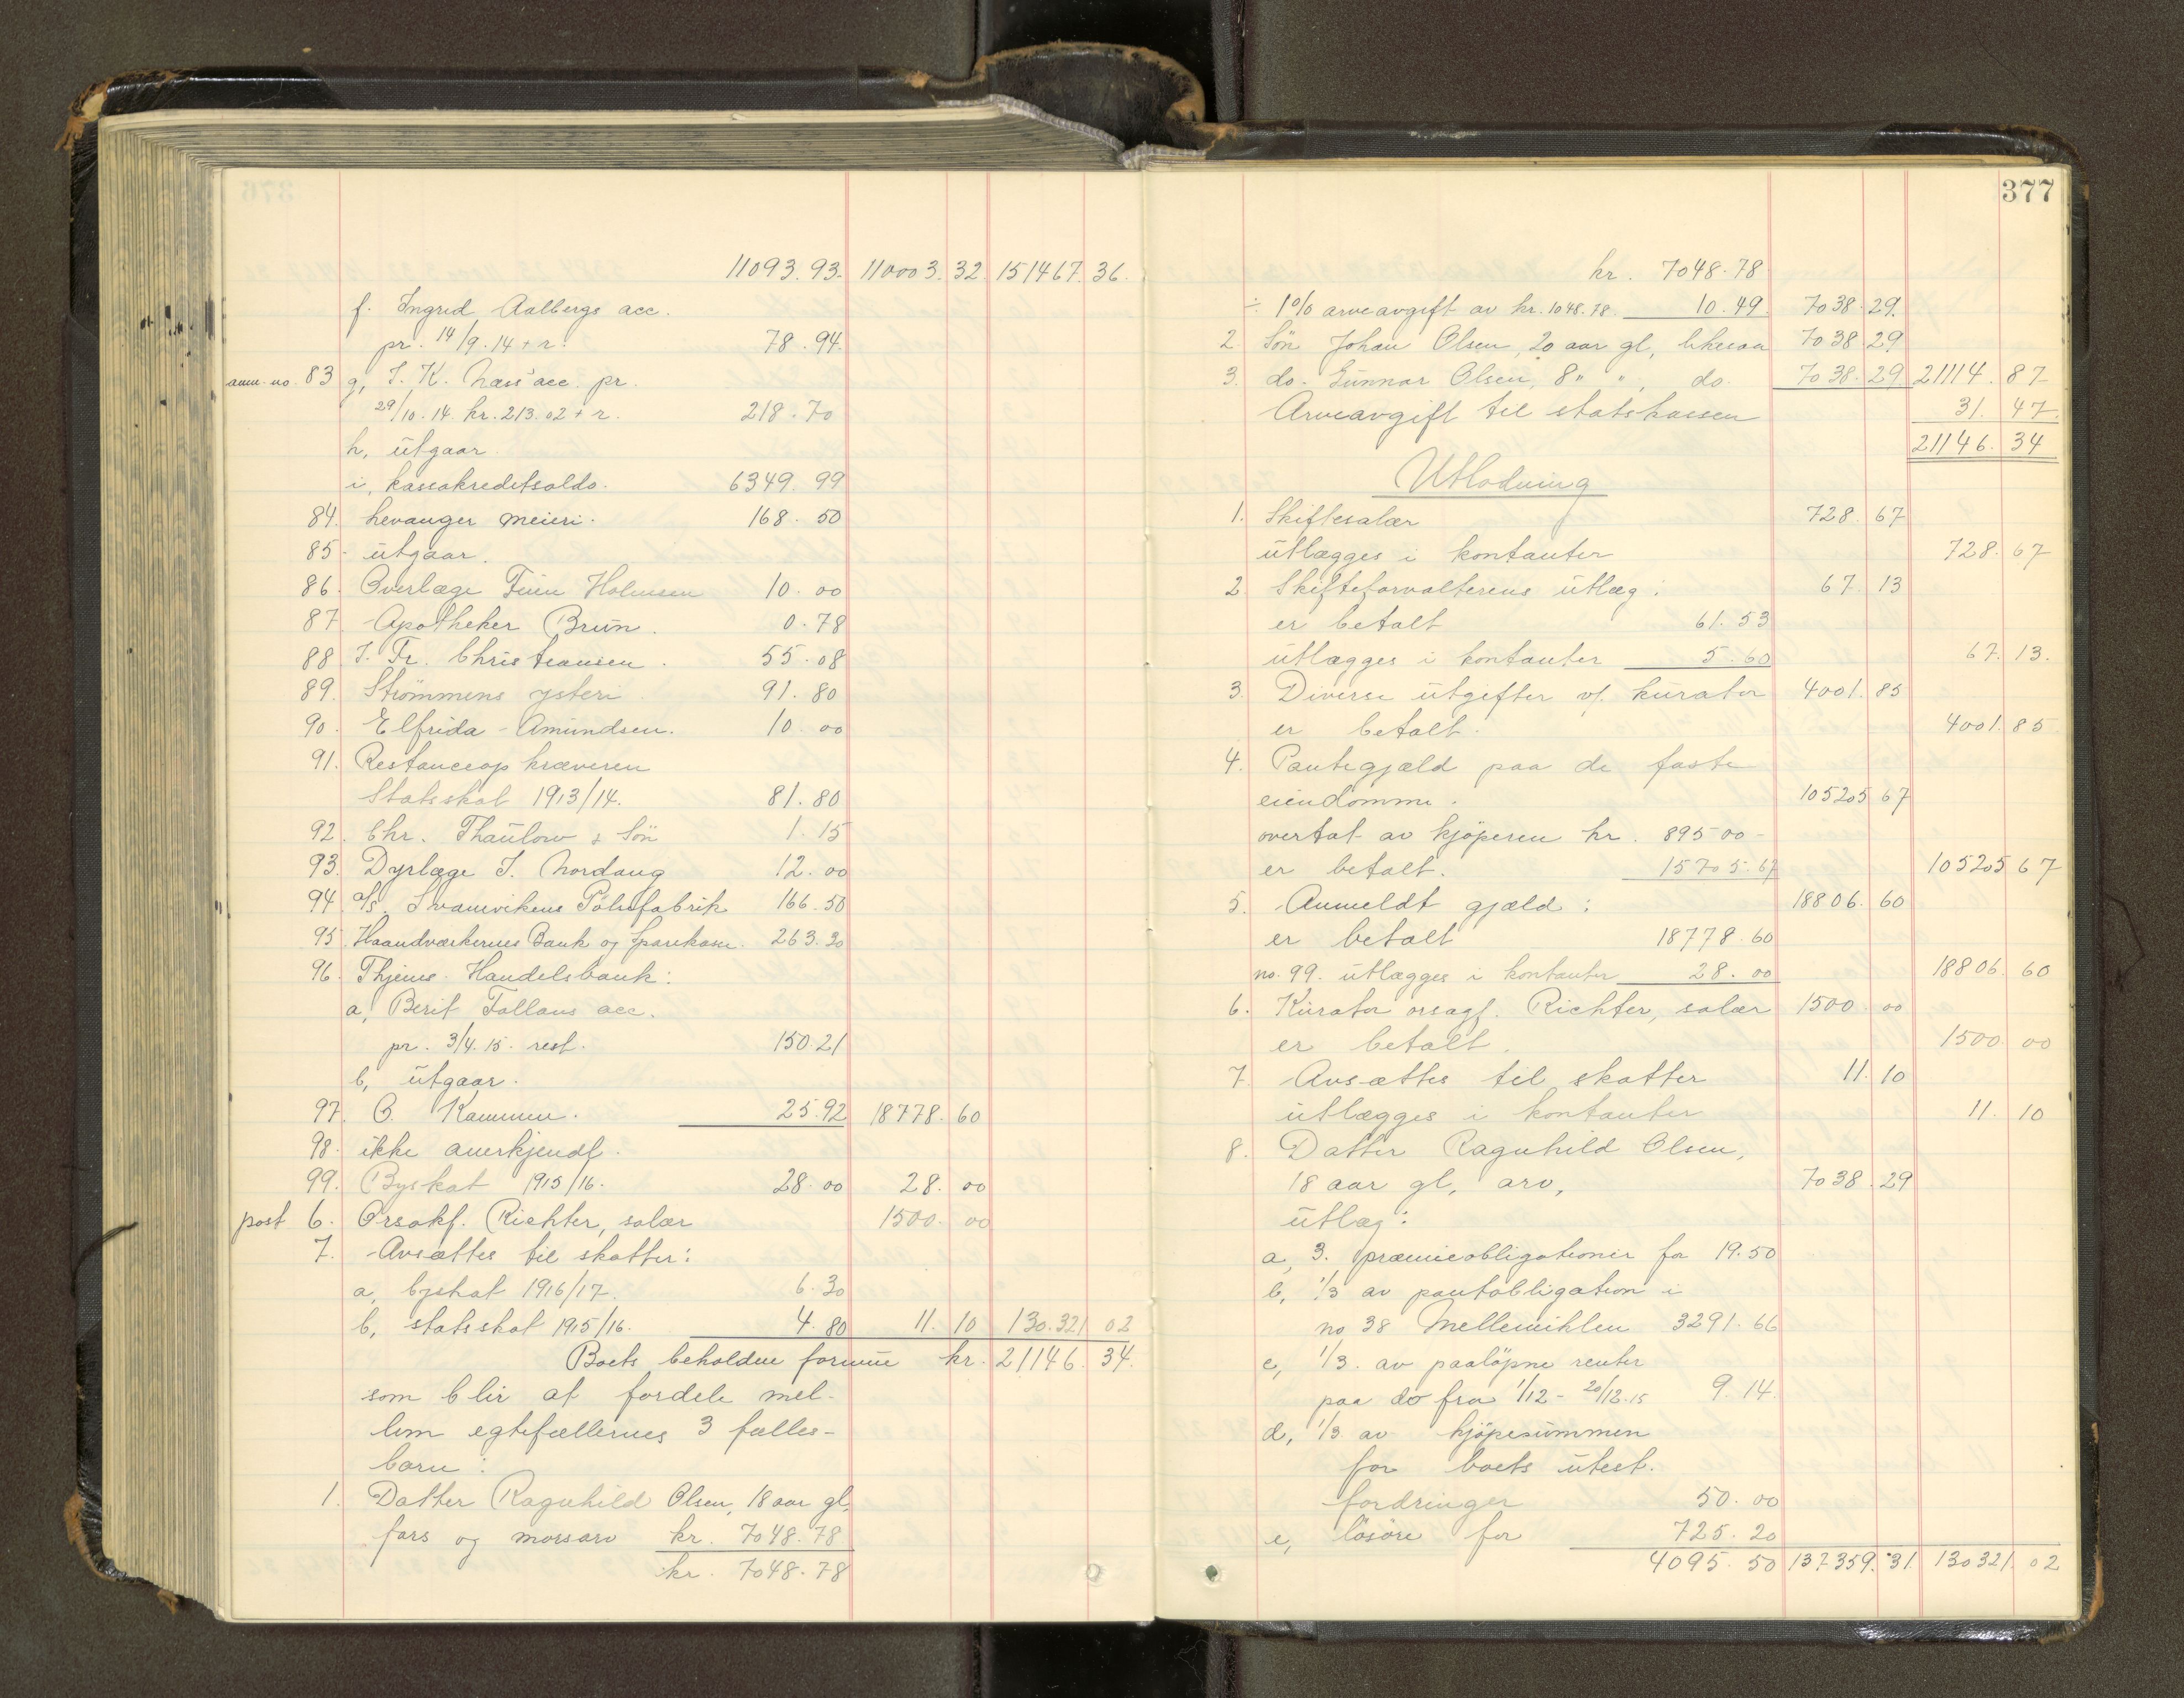 11093.93. 110003.32. 151467.36.
f. Ingrid Aalbergs acc.
pr. 14/9.14 + r. 78.94.
anm. no. 83 g, J. K. Næss' acc. pr.
29/10.14. kr. 213.02 + r. 218.70
h, utgaar.
i, kassakreditsaldo. 6349.99
84. Levanger meieri. 168.50
85. utgaar.
86. Overlæge Finn Holmsen 10.00
87. Apotheker Brun. 0.78
88 J. Fr. Christiansen. 55.08
89. Strömmens ysteri 91.80
90. Elfrida Amundsen. 10.00
91. Restanceopkræveren
Statsskat 1913/14. 81.80
92. Chr. Thaulow & Sön 1.15
93. Dyrlæge J. Nordaug 12.00
94. A/S. Svanevikens Pölsefabrik 166.50
95. Haandværkernes Bank og Sparekasse. 263.30
96. Thjems Handelsbank:
a, Berit Follaus acc.
pr. 3/4.15. rest. 150.21
b, utgaar.
97. O. Kammen. 25.92 18778.60
98. ikke anerkjendt.
99. Byskat 1915/16. 28.00 28.00
post 6. Orsakf. Richter, salær 1500.00
7. Avsættes til skatter:
a, byskat 1916/17. 6.30
b, statsskat 1915/16. 4.80 11.10 130.321 02
Boets beholdne formue kr. 21146.34.
som blir at fordele mel-
lem egtefællernes 3 fælles-
barn:
1. Datter Ragnhild Olsen, 18 aar gl,
fars og morsarv kr. 7048.78
kr. 7048.78
377
kr. 7048.78
÷ 1% arveavgift av kr. 1048.78. 10.49. 7038.29.
2. Sön Johan Olsen, 20 aar gl, likesaa 7038.29
3. do. Gunnar Olsen, 8 " ", do. 7038.29 21114.87
Arveavgift til statskassen 31.47.
21146.34
Utlodning
1. Skiftesalær 728.67
utlægges i kontanter 728.67
2. Skifteforvalterens utlæg: 67.13
er betalt 61.53
utlægges i kontanter 5.60 67.13.
3. Diverse utgifter v/. kurator 4001.85
er betalt. 4001.85
4. Pantegjæld paa de faste
eiendomme. 105205 67
overtat av kjöperen kr. 89500 -
er betalt. 15705.67 105205 67
5. Anmeldt gjæld: 18806.60
er betalt 18778.60
no. 99. utlægges i kontanter 28.00 18806.60
6. Kurator orsagf. Richter, salær 1500.00
er betalt. 1500.00
7. Avsættes til skatter 11.10
utlægges i kontanter 11.10
8. Datter Ragnhild Olsen,
18 aar gl, arv, 7038.29
utlæg:
a, 3. præmieobligationer for 19.50
b, 1/3 av pantobligation i
no 38 Mellemihlen 3291.66
c, 1/3. av paalöpne renter
paa do fra 1/12 - 20/12.15 9.14.
d, 1/3 av kjöpesummen
for boets utest.
fordringer 50.00
e, lösöre for 725.20
4095.50 137359.31. 130321.02